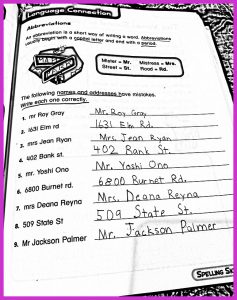 Language Connection
Abbreviations
An abbreviation is a short way of writing a word. Abbreviations
usually begin with a capital letter and end with a period.
Mister = Mr. Mistress = Mrs.
Street = St. Road = Rd.
The following names and addresses have mistakes.
Write each one correctly.
1. mr Roy Gray Mr. Roy Gray
2. 1631 Elm rd 1631 Elm Rd.
3. mrs Jean Ryan Mrs. Jean Ryan
4. 402 Bank st. 402 Bank St.
5. mr. Yoshi Ono Mr. Yoshi Ono
6. 6800 Burnet rd. 6800 Burnet Rd.
7. mrs Deana Reyna Mrs. Deana Reyna
8. 509 State St 509 State St.
9. Mr Jackson Palmer Mr. Jackson Palmer